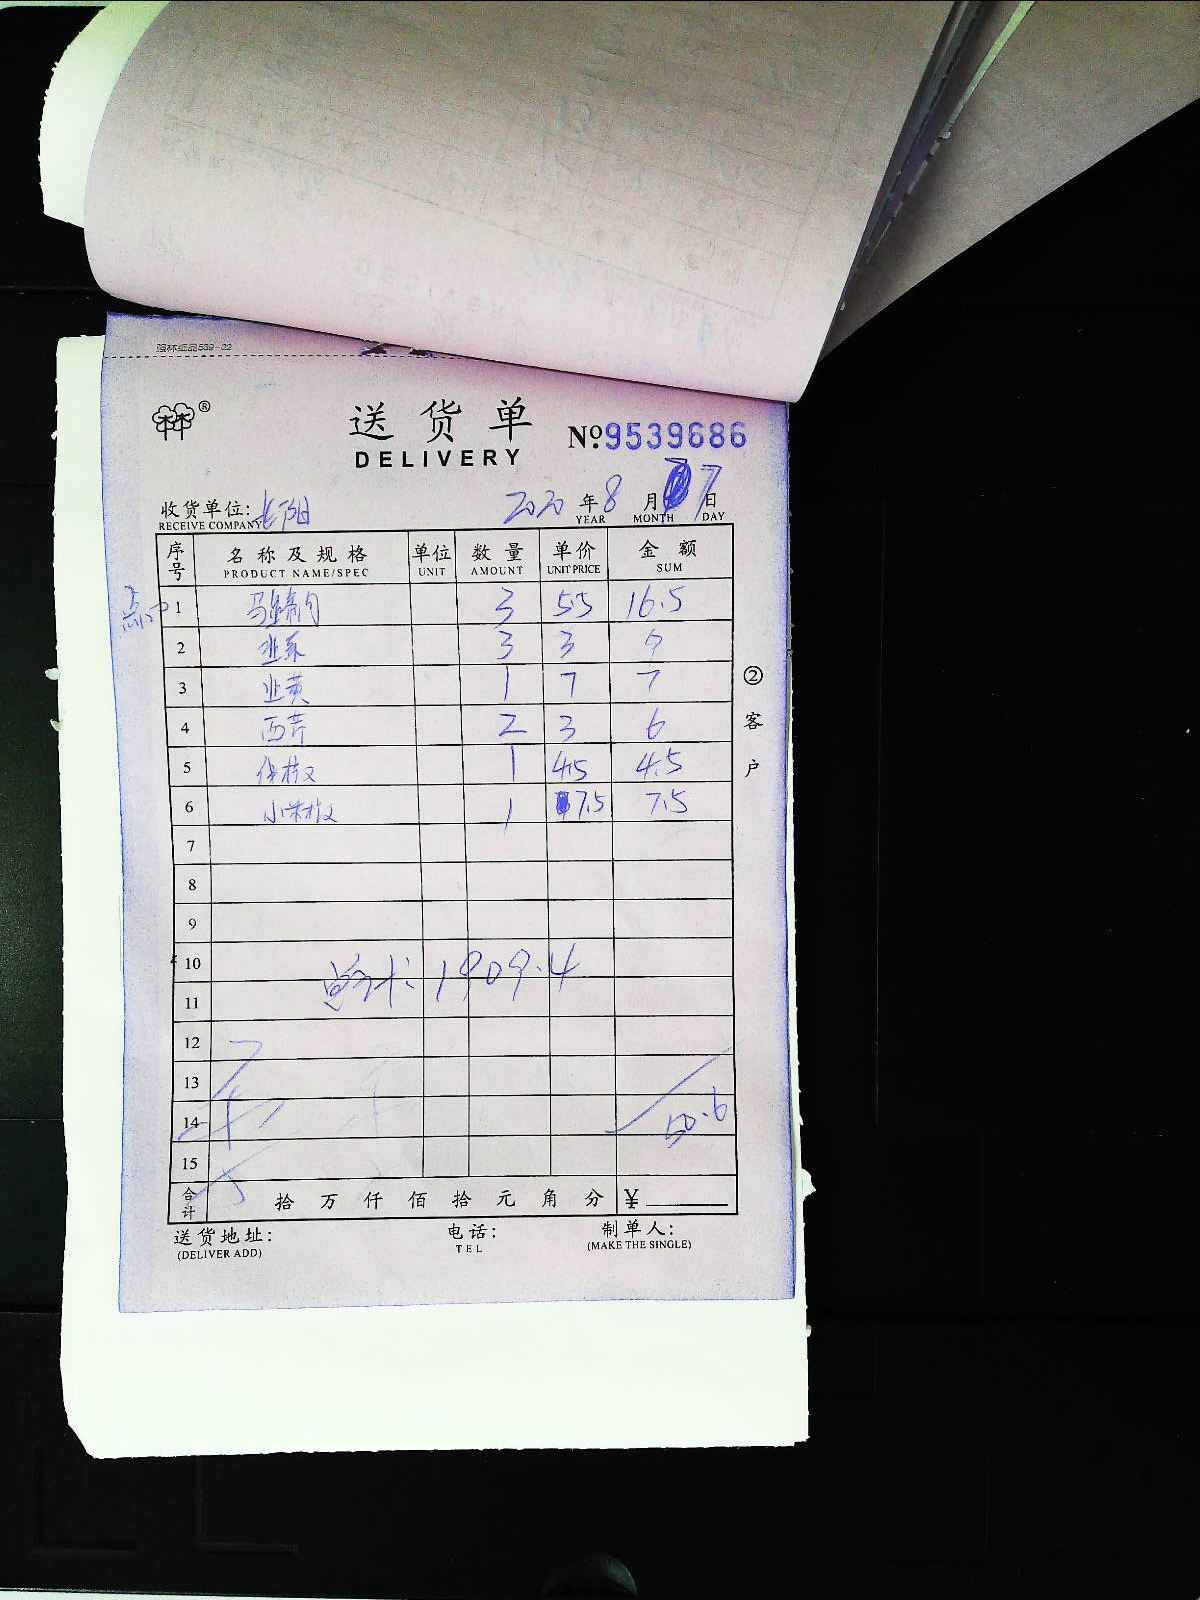 强林纸品539-32
林林®
送货单
DELIVERY
№9539686
收货单位:长阳 2020年8月7日
RECEIVE COMPANY YEAR MONTH DAY
序号 名称及规格 单位 数量 单价 金额
PRODUCT NAME/SPEC UNIT AMOUNT UNIT PRICE SUM
1 3 5.5 16.5
2 韭菜 3 3 9
3 韭黄 1 7 7
4 西芹 2 3 6
5 1 4.5 4.5
6 小米椒 1 7.5 7.5
7
8
9
10
总计:1909.4
11
12
13
14 50.6
15
合计 拾万仟佰拾元角分 ¥
送货地址: 电话: 制单人:
(DELIVER ADD) TEL (MAKE THE SINGLE)
②客户